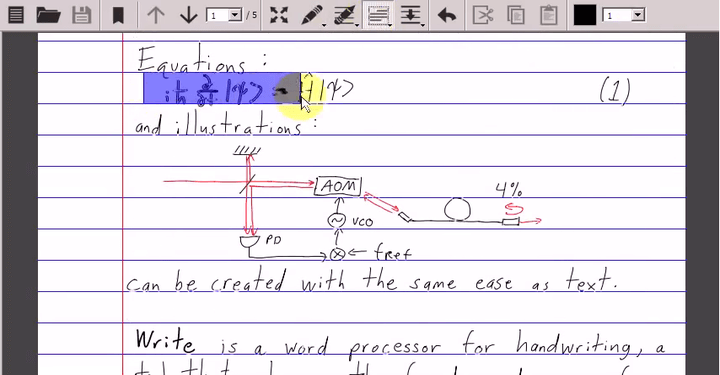 1 / 5 1
Equations :
iħ ∂/∂t |ψ> = Ĥ|ψ> (1)
and illustrations :
AOM
4%
VCO
PD
fref
can be created with the same ease as text.
Write is a word processor for handwriting, a